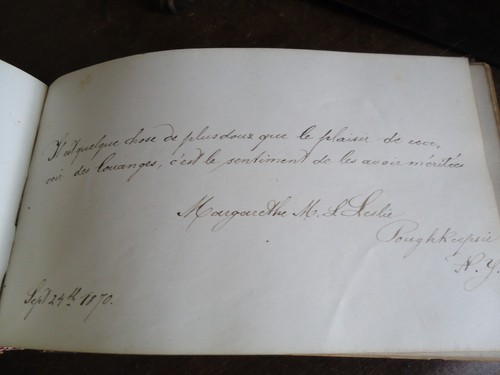 Il est quelque chose de plus doux que le plaisir de rece,
voir des louanges, c'est le sentiment de les avoir méritées
Margarethe M. L Leslie
Poughkeepsie
N. Y.
Sept 24th 1870.